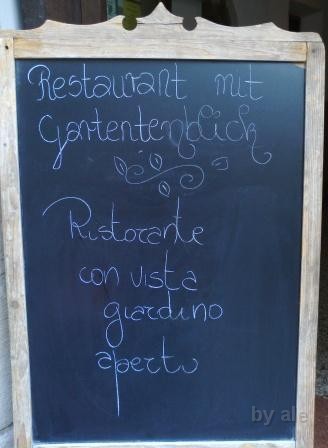 Restaurant mit
Gartentenblick
Ristorante
con vista
giardino
aperto
by ale